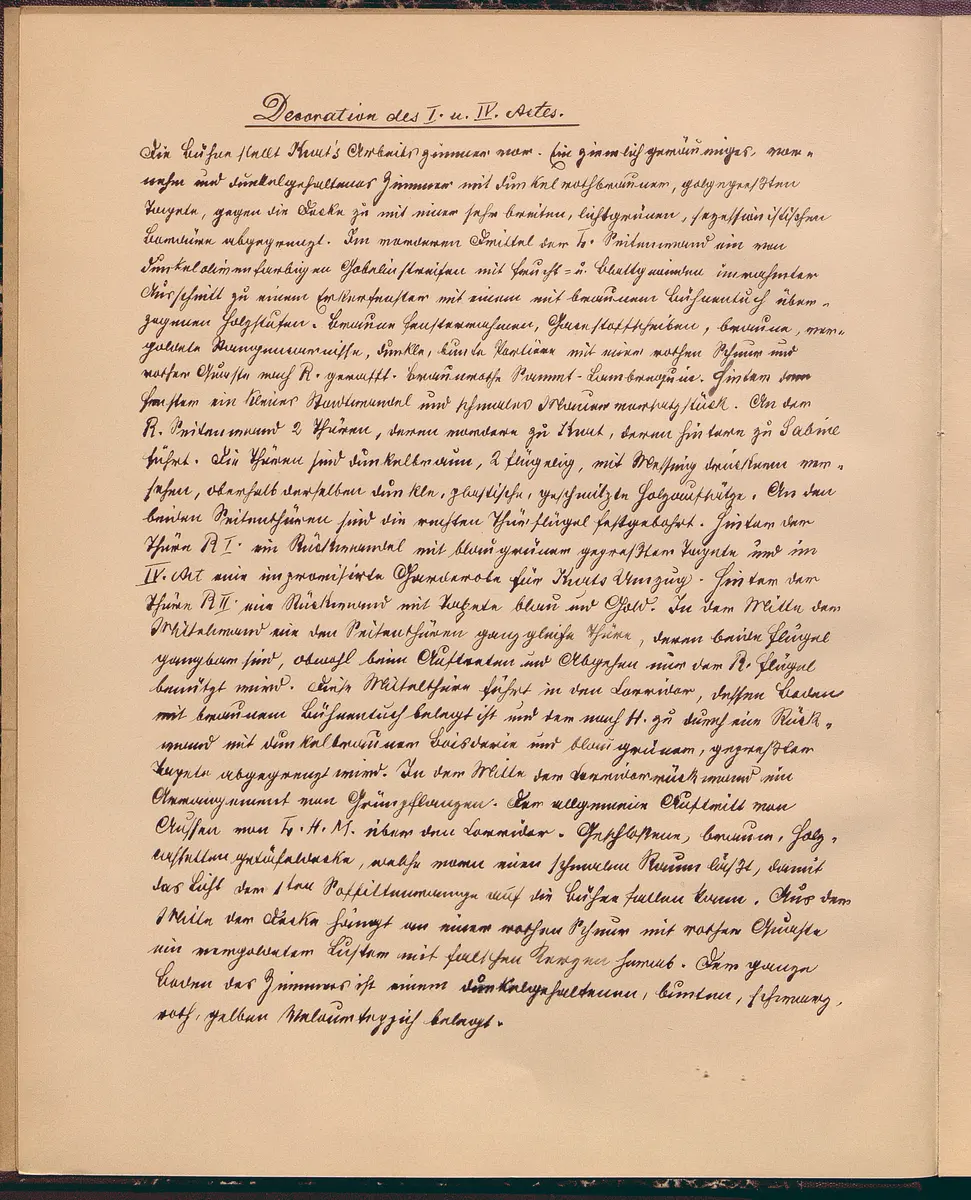 Decoration des I. u. IV. Actes.
Die Bühne stellt Knut's Arbeitszimmer vor. Ein ziemlich geräumiges, vor-
nehm und dunkelgehaltenes Zimmer mit dunkelrothbrauner, goldgepreßten
Tapete, gegen die Decke zu mit einer sehr breiten, lichtgrünen, sezessionistischen
Bordüre abgegrenzt. Im vorderen Drittel der L. Seitenwand ein von
dunkelolivenfarbigen Gobelinstreifen mit Frucht- u. Blattguirlanden umrahmter
Ausschnitt zu einem Erkerfenster mit einem mit braunem Bühnentuch über-
zogenen Holzstufen. Braune Fensterrahmen, Gazestoffscheiben, braune, ver-
goldete Stangencarnisse, dunkle, bunte Portière mit einer rothen Schnur und
rother Quaste nach R. gerafft. Braunrothe Sammt-Lambrequin. Hinter dem
Fenster ein kleines Stadtwandel und schmales Mauerversatzstück. An der
R. Seitenwand 2 Thüren, deren vordere zu Knut, deren hintere zu Sabine
führt. Die Thüren sind dunkelbraun, 2 flügelig, mit Messingdrückern ver-
sehen, oberhalb derselben dunkle, plastische, geschnitzte Holzaufsätze. An den
beiden Seitenthüren sind die ersten Thürflügel festgebohrt. Hinter der
Thüre R I. ein Rückwandel mit blaugrüner gepreßter Tapete und im
IV. Act eine improvisirte Garderobe für Knuts Umzug. Hinter der
Thüre R II. eine Rückwand mit Tapete blau und Gold. In der Mitte der
Mittelwand eine den Seitenthüren ganz gleiche Thüre, deren beide Flügel
gangbar sind, obwohl beim Auftreten und Abgehen nur der R. Flügel
benützt wird. Diese Mittelthüre führt in den Corridor, dessen Boden
mit braunem Bühnentuch belegt ist und der nach H. zu durch eine Rück-
wand mit dunkelbrauner Boiserie und blaugrüner, gepreßter
Tapete abgegrenzt wird. In der Mitte der Corridorrückwand ein
Arrangement von Grünpflanzen. Der allgemeine Auftritt von
Aussen von L. H. M. über den Corridor. Geschloßene, braune, Holz-
castettengetäfeldecke, welche vorn einen schmalen Raum läßt, damit
das Licht der 1ten Soffittenrampe auf die Bühne fallen kann. Aus der
Mitte der Decke hängt an einer rothen Schnur mit rother Quaste
ein vergoldeter Luster mit falschen Kerzen herab. Der ganze
Boden des Zimmers ist einem dunkelgehaltenen, bunten, schwarz,
roth, gelben Velourteppich belegt.